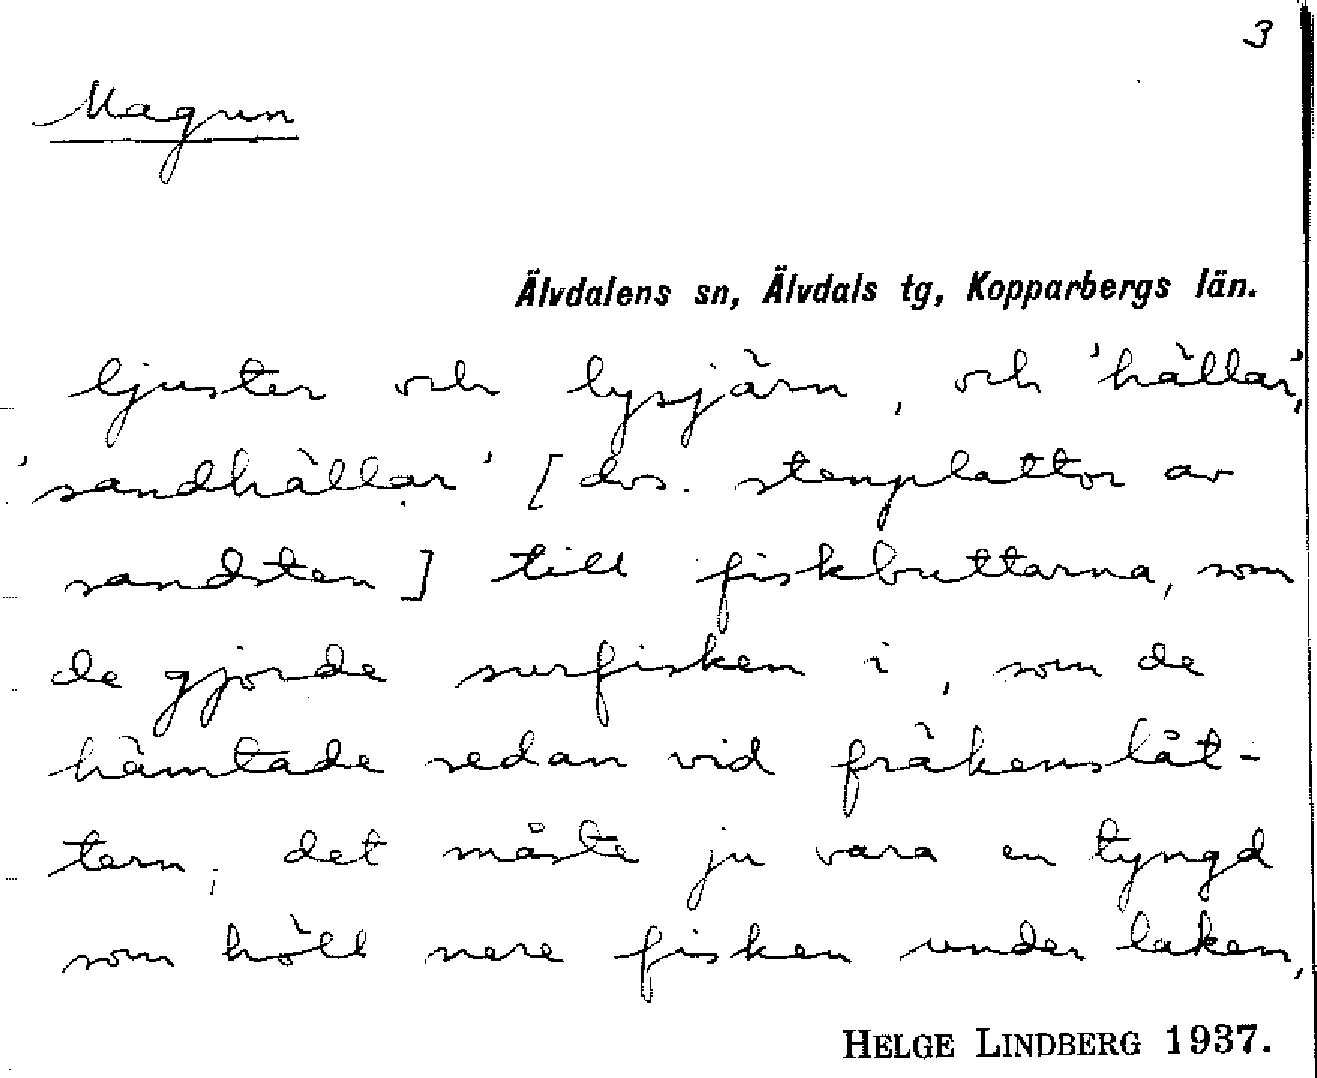 3
Magun
Älvdalens sn, Älvdals tg, Kopparbergs län.
ljuster och lysjärn, och 'hällar',
'sandhällar' [dvs. stenplattor av
sandsten] till fiskbuttarna, som
de gjorde surfisken i, som de
hämtade sedan vid fräkenslåt-
tern; det måste ju vara en tyngd
som höll nere fisken under laken,
HELGE LINDBERG 1937.